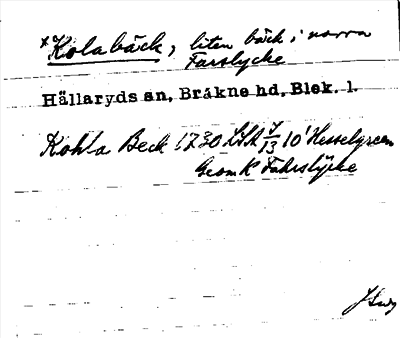 *Kolabäck, liten bäck i norra
Farslycke
Hällaryds sn, Bräkne hd, Blek. l.
Kohla Beck 1730 LSA 7/13 10' Hesselgreen
Geom K Fahrslÿcke